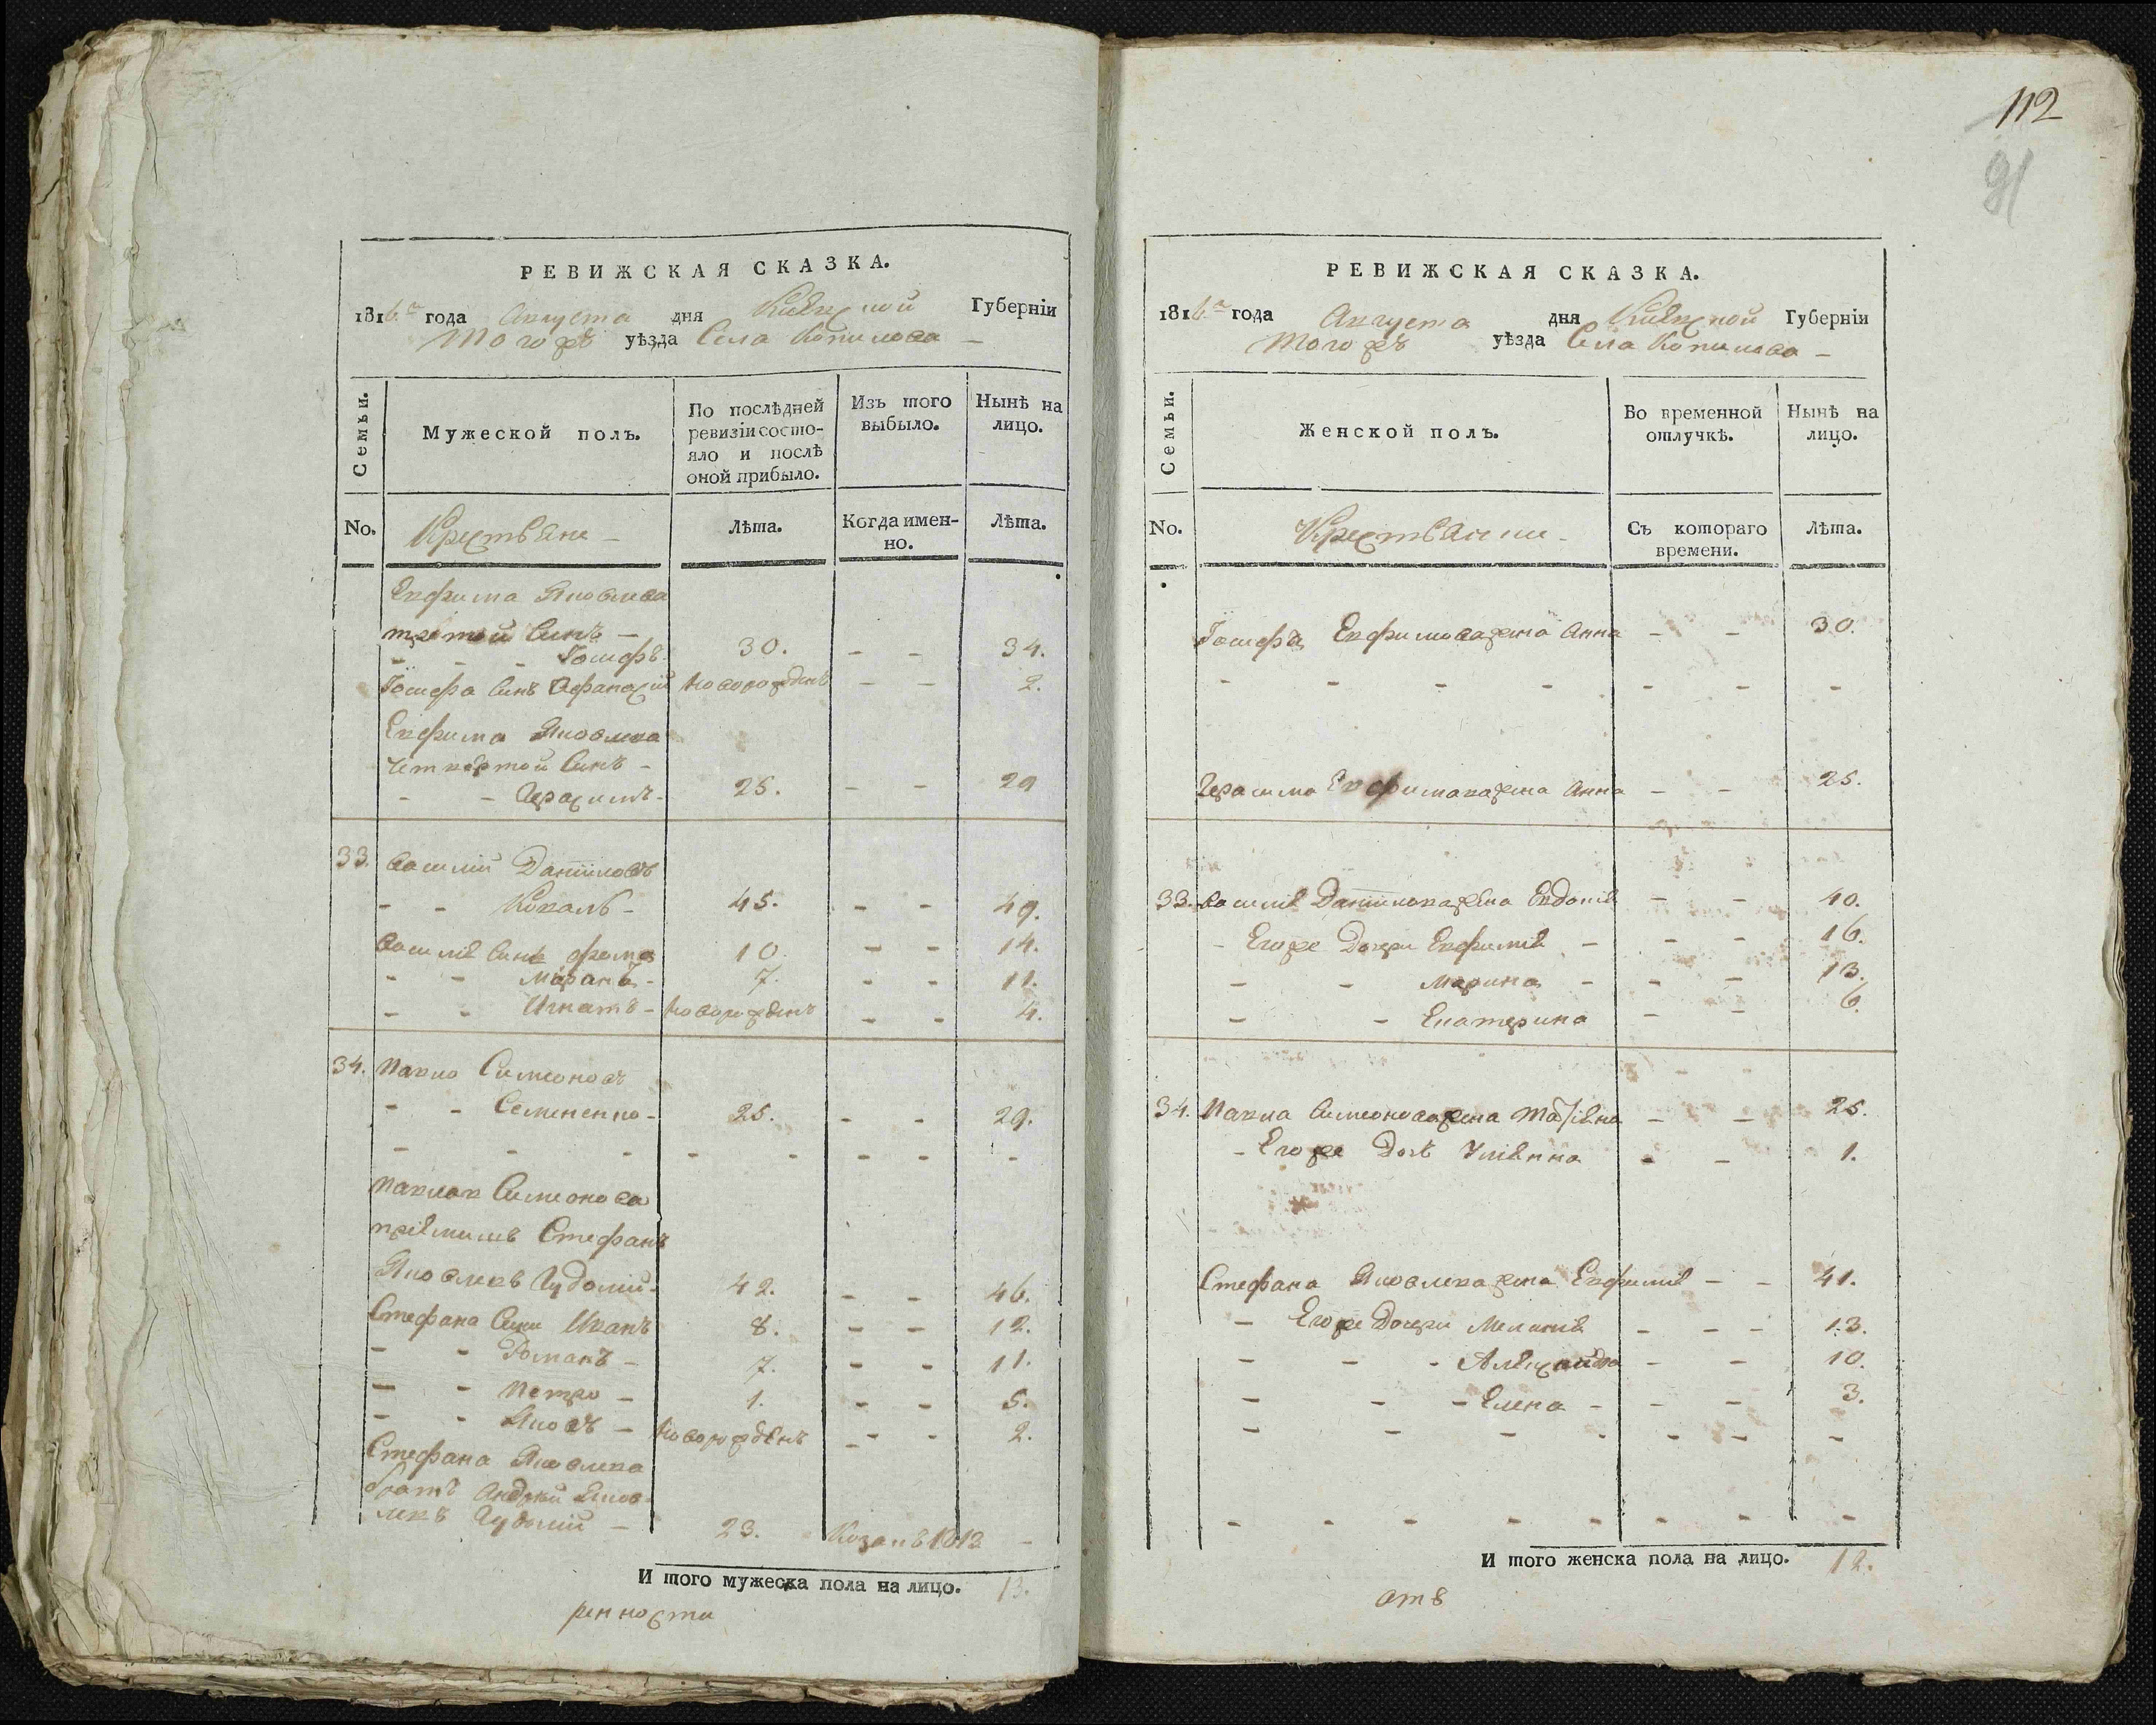 112
91
РЕВИЖСКАЯ СКАЗКА.
1816го года Августа дня Киевской Губерніи
Тогожъ уѣзда Села Копилова —
Семьи.
Мужеской полъ.
По послѣдней ревизіи состо-
яло и послѣ
оной прибыло.
Изъ того
выбыло.
Нынѣ на
лицо.
No.
Крестьяне —
Лѣта.
Когда имен-
но.
Лѣта.
Евфима Яковлева
третой Синъ —
Іосифъ 30. - - 34.
Іосифа Синъ Афанасій новорожденъ - - 2.
Евфима Яковлева
четвертой Синъ —
- - Герасимъ - 25. - - 29
33. Василій Даніиловъ
- - Коваль - 45. - - 49.
Василія Синъ Фома 10. - - 14.
- - - 7. - - 11.
- - Игнатъ - новорожденъ - - 4.
34. Павло Симеоновъ
- - Семененко - 25. - - 29.
Симеонова
Стефанъ
Яковлевъ 42. - - 46.
Стефана Сини Иванъ 8. - - 12.
- - Романъ - 7. - - 11.
- - Петро - 1. - - 5.
- - Яковъ - новорожденъ - - 2.
Стефана Яковлева
братъ Андрей Яков-
левъ 23. 1812 -
И того мужеска пола на лицо. 13.
ренности
РЕВИЖСКАЯ СКАЗКА.
1816го года Августа дня Киевской Губерніи
Тогожъ уѣзда Села Копилова —
Семьи.
Женской полъ.
Во временной
отлучкѣ.
Нынѣ на
лицо.
No.
Крестьянки -
Съ котораго
времени.
Лѣта.
Іосифа Евфимова жена Анна - - 30.
Герасима Евфимова жена Анна - - 25.
33. Василія Даніилова жена Евдокія - - 40.
- Егоже Дочери Евфимія - - - 16.
- - Марина - - - 13.
- - Екатерина - - 6.
34. Павла Симеонова жена Татіяна - - 25.
- Егоже Дочь Уліянна - - 1.
Стефана Яковлева жена Евфимія - - 41.
- Егоже Дочери Меланія - - - 13.
- - - Александра - - 10.
- - - Елена - - - 3.
И того женска пола на лицо. 12.
отъ